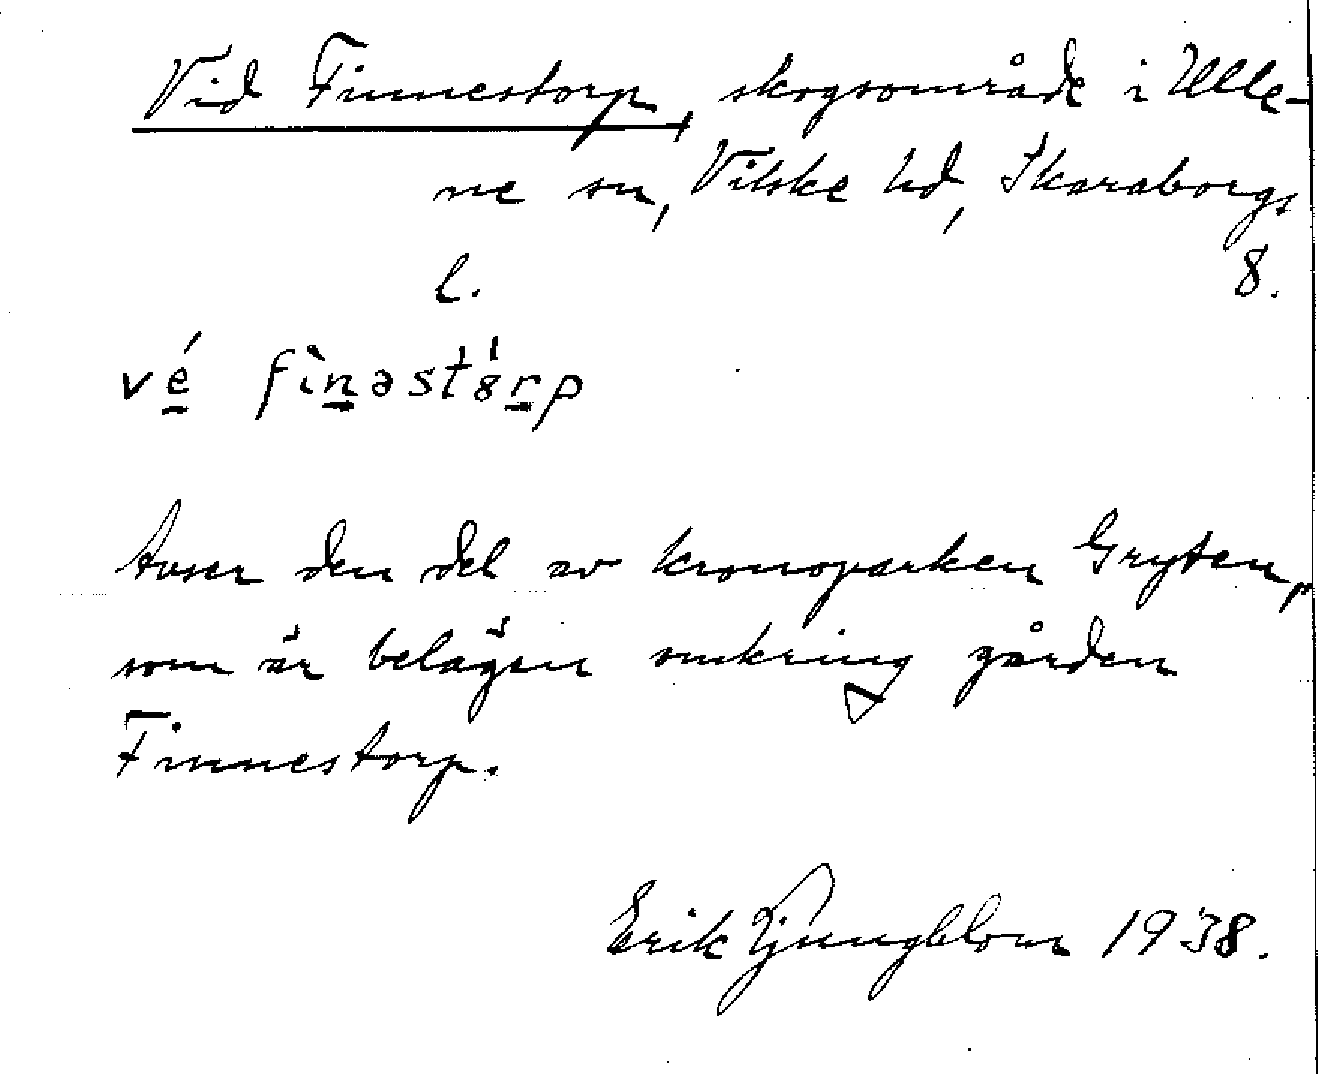 Vid Finnestorp, skogsområde i Ulle-
ne sn, Vilske hd, Skaraborgs
l. 8.
vé fìnəstȯ́rp
Avser den del av kronoparken Gryten,
som är belägen omkring gården
Finnestorp.
Erik Ljungblom 1938.